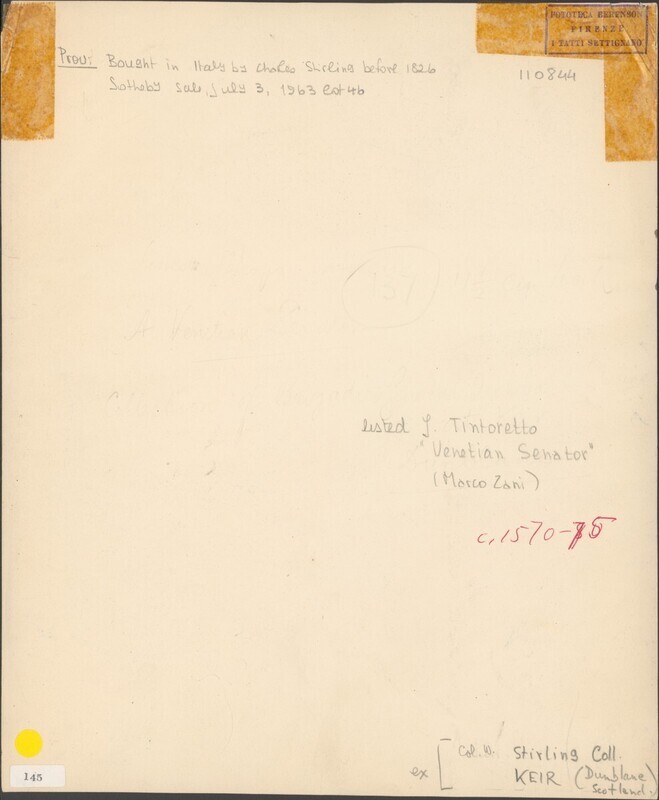 FOTOTECA BERENSON
FIRENZE
I TATTI SETTIGNANO
Prov: Bought in Italy by Charles Stirling before 1826
Sotheby sale, July 3, 1963 lot 46
110844
137
listed J. Tintoretto
"Venetian Senator"
(Marco Zani)
c. 1570-75
ex [ Col. W. Stirling Coll.
KEIR (Dunblane)
Scotland.
145